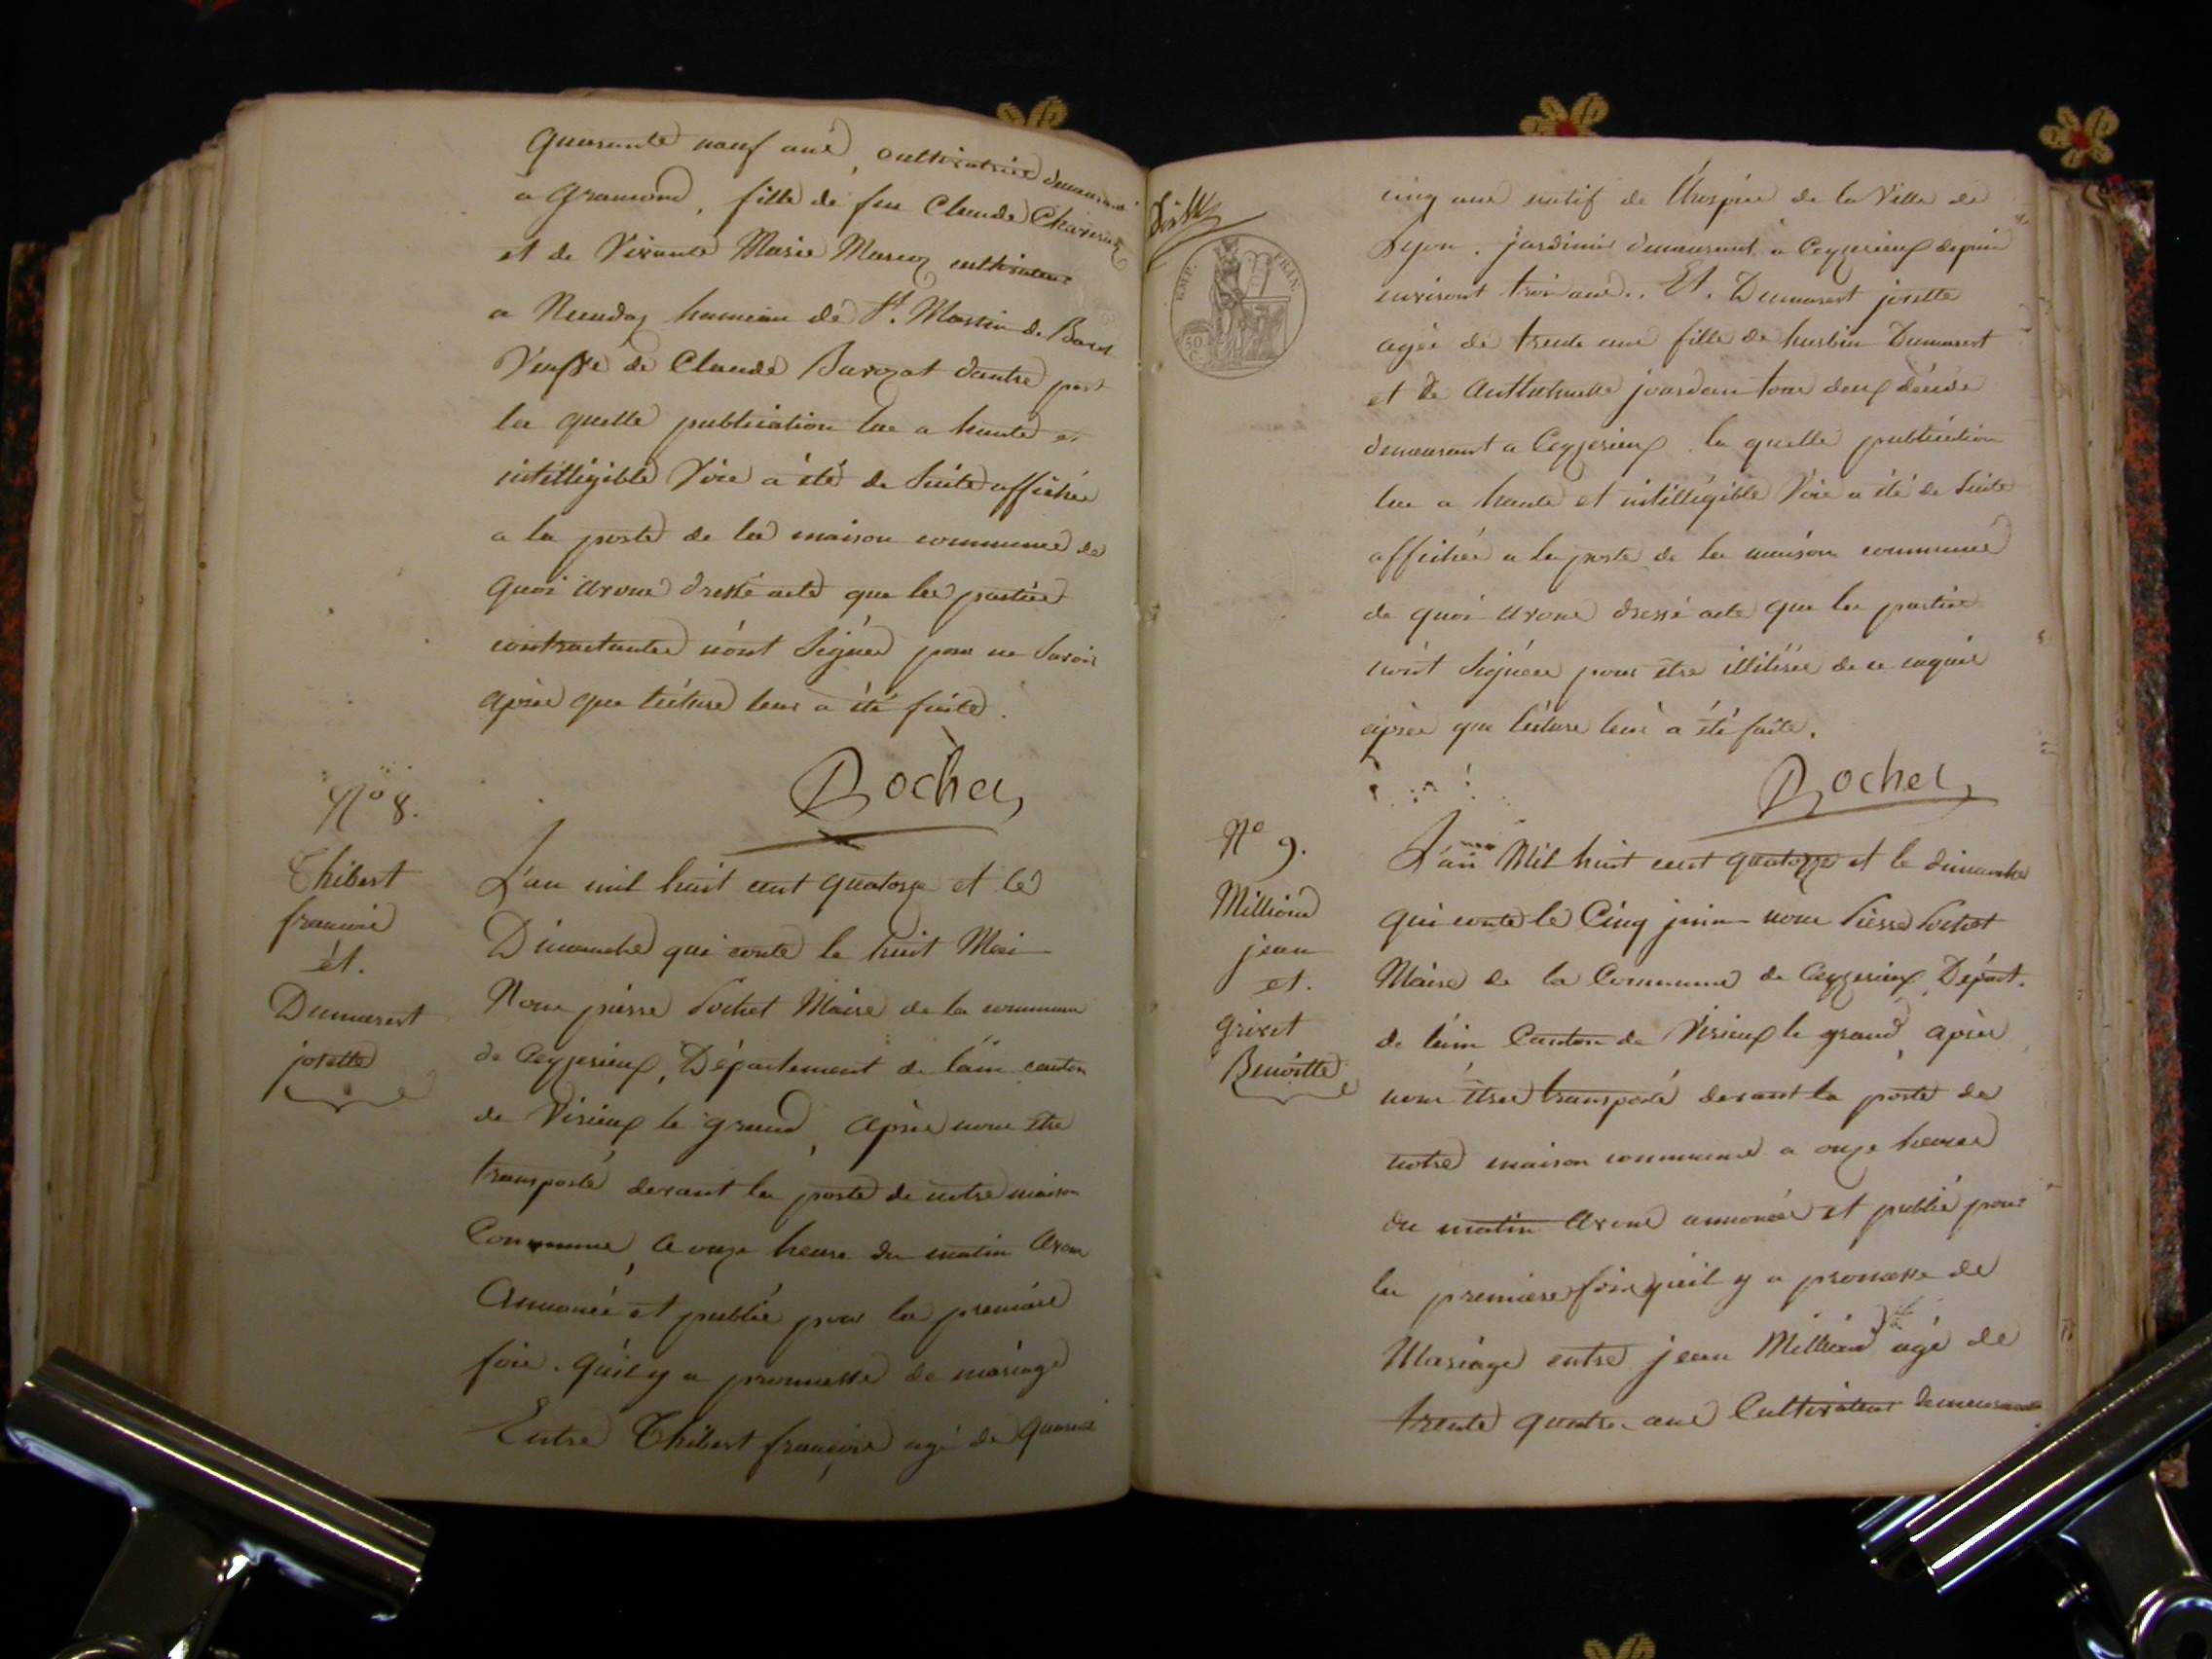 quarante neuf ans, cultivatrice demeurant
a gramond, fille de feu Claude
et de Vivante Marie cultivateur
a hameau de St. Martin de Bavel
Veuffe de Claude d'autre part
la quelle publication lue a haute et
intélligible Voie a été de Suite affichée
a la porte de la maison commune de
quoi avons dressé acte que les parties
contractantes n'ont Signés pour ne Savoir
après que lécture leur a été faite.
Rochet
N° 8.
Thibert
francois
et.
Dumarest
josette
L'an mil huit cent quatorze et le
Dimanche qui conte le huit Mai
Nous pierre Rochet Maire de la commune
de Ceyzerieux, Département de l'ain canton
de Virieux le grand, après nous être
transporté devant la porte de notre maison
Commune, a onze heure du matin avons
Annoncé et publié pour la premiere
fois. qu'il y a promesse de mariage
Entre Thibert françois agé de quarante
cinq ans natif de l'hospice de la Ville de
Lyon. jardinier demeurant a Ceyzerieux depuis
environt trois ans. Et. Dumarest josette
agée de trente ans fille de Dumarest
et de jourdan tous deux décédés
demeurant a Ceyzerieux la quelle publication
lue a haute et intélligible Voie a été de Suite
affichée a la porte de la maison commune
de quoi avons dressé acte que les parties
n'ont Signées pour être illitérées de ce enquis
après que lécture leur a été faite.
EMP. FRAN.
50 C.
Rochet
N° 9.
Milliond
jean
et.
grivet
Benoitte
L'an Mil huit cent quatorze et le dimanche
qui conte le Cinq juin nous Pierre Rochet
Maire de la Commune de Ceyzerieux Départ.
de l'ain Canton de Virieux le grand, après
nous être transporté devant la porte de
notre maison commune a onze heures
du matin avons annoncé et publié pour
la premiere fois qu'il y a promesse de
Mariage entre jean Milliond agé de
trente quatre ans Cultivateur demeurant